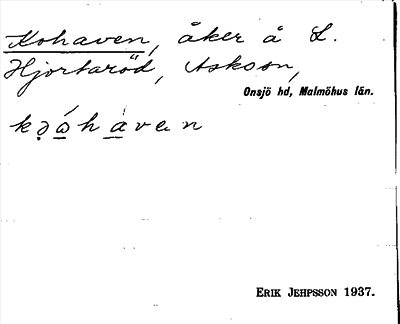 Kohaven, åker å L.
Hjortaröd, Askson,
Onsjö hd, Malmöhus län.
kǫώhȧvεn
ERIK JEHPSSON 1937.